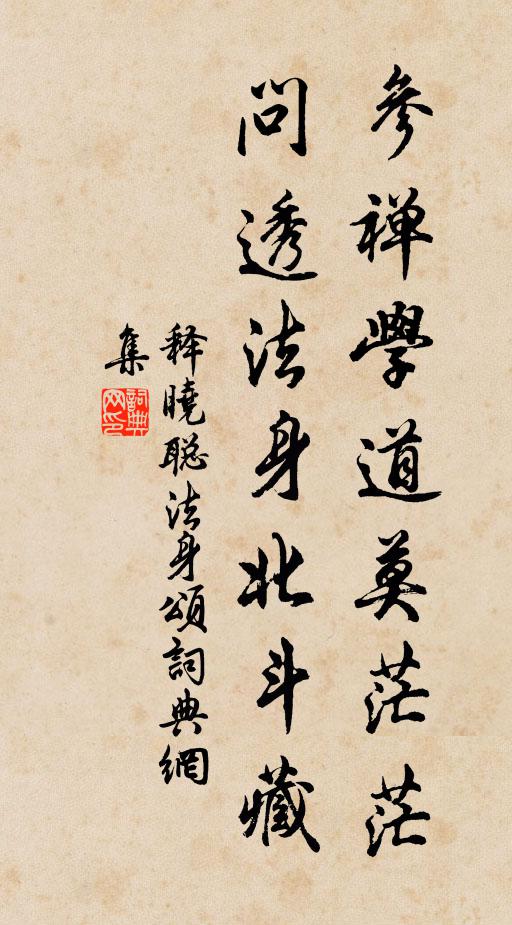 參禅學道莫茫茫
問透法身北斗藏
释曉聪法身頌詞典網
集
詞典
网印